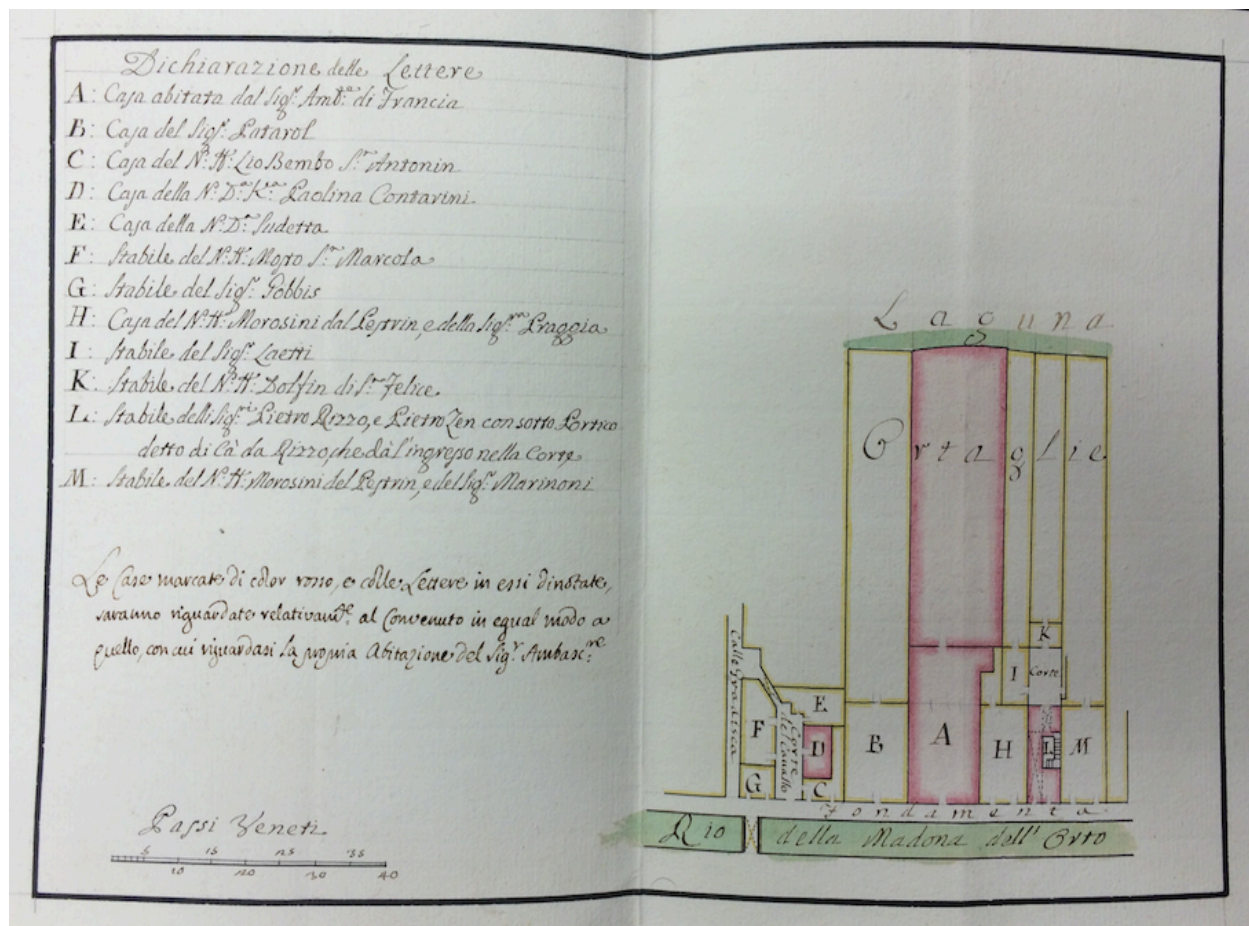 Dichiarazione delle Lettere
A: Casa abitata dal Sigr: Ambre: di Francia
B: Casa del Sigr: Patarol
C: Casa del N: H: Zio Bembo Sr: Antonin
D: Casa della N: Da: Ka: Paolina Contarini
E: Casa della N: Da: Sudetta
F: Stabile del N: H: Moro Sn: Marcola
G: Stabile del Sigr: Gobbis
H: Casa del N: H: Morosini dal Pestrin, e della Sigra: Praggia
I: Stabile del Sigr: Laetti
K: Stabile del N: H: Dolfin di Sn: Felice
L: Stabile delli Sigri: Pietro Rizzo, e Pietro Zen con sotto Portico
detto di Cà da Rizzo, che dà l'ingresso nella Corte
M: Stabile del N: H: Morosini del Pestrin, e del Sigr: Marinoni
Le Case marcate di color rosso, e colle Lettere in essi dinotate,
saranno riguardate relativamte: al Convenuto in egual modo a
quello, con cui riguardasi la propria Abitazione del Sigr Ambascre:
Passi Veneti
5 15 25 35
10 20 30 40
Laguna
Ortaglie
K
I Corte
Calle Gradisca
E
F
Corte del Cavallo
D
B
A
H
L
M
G
C
Fondamenta
Rio della Madona dell' Orto